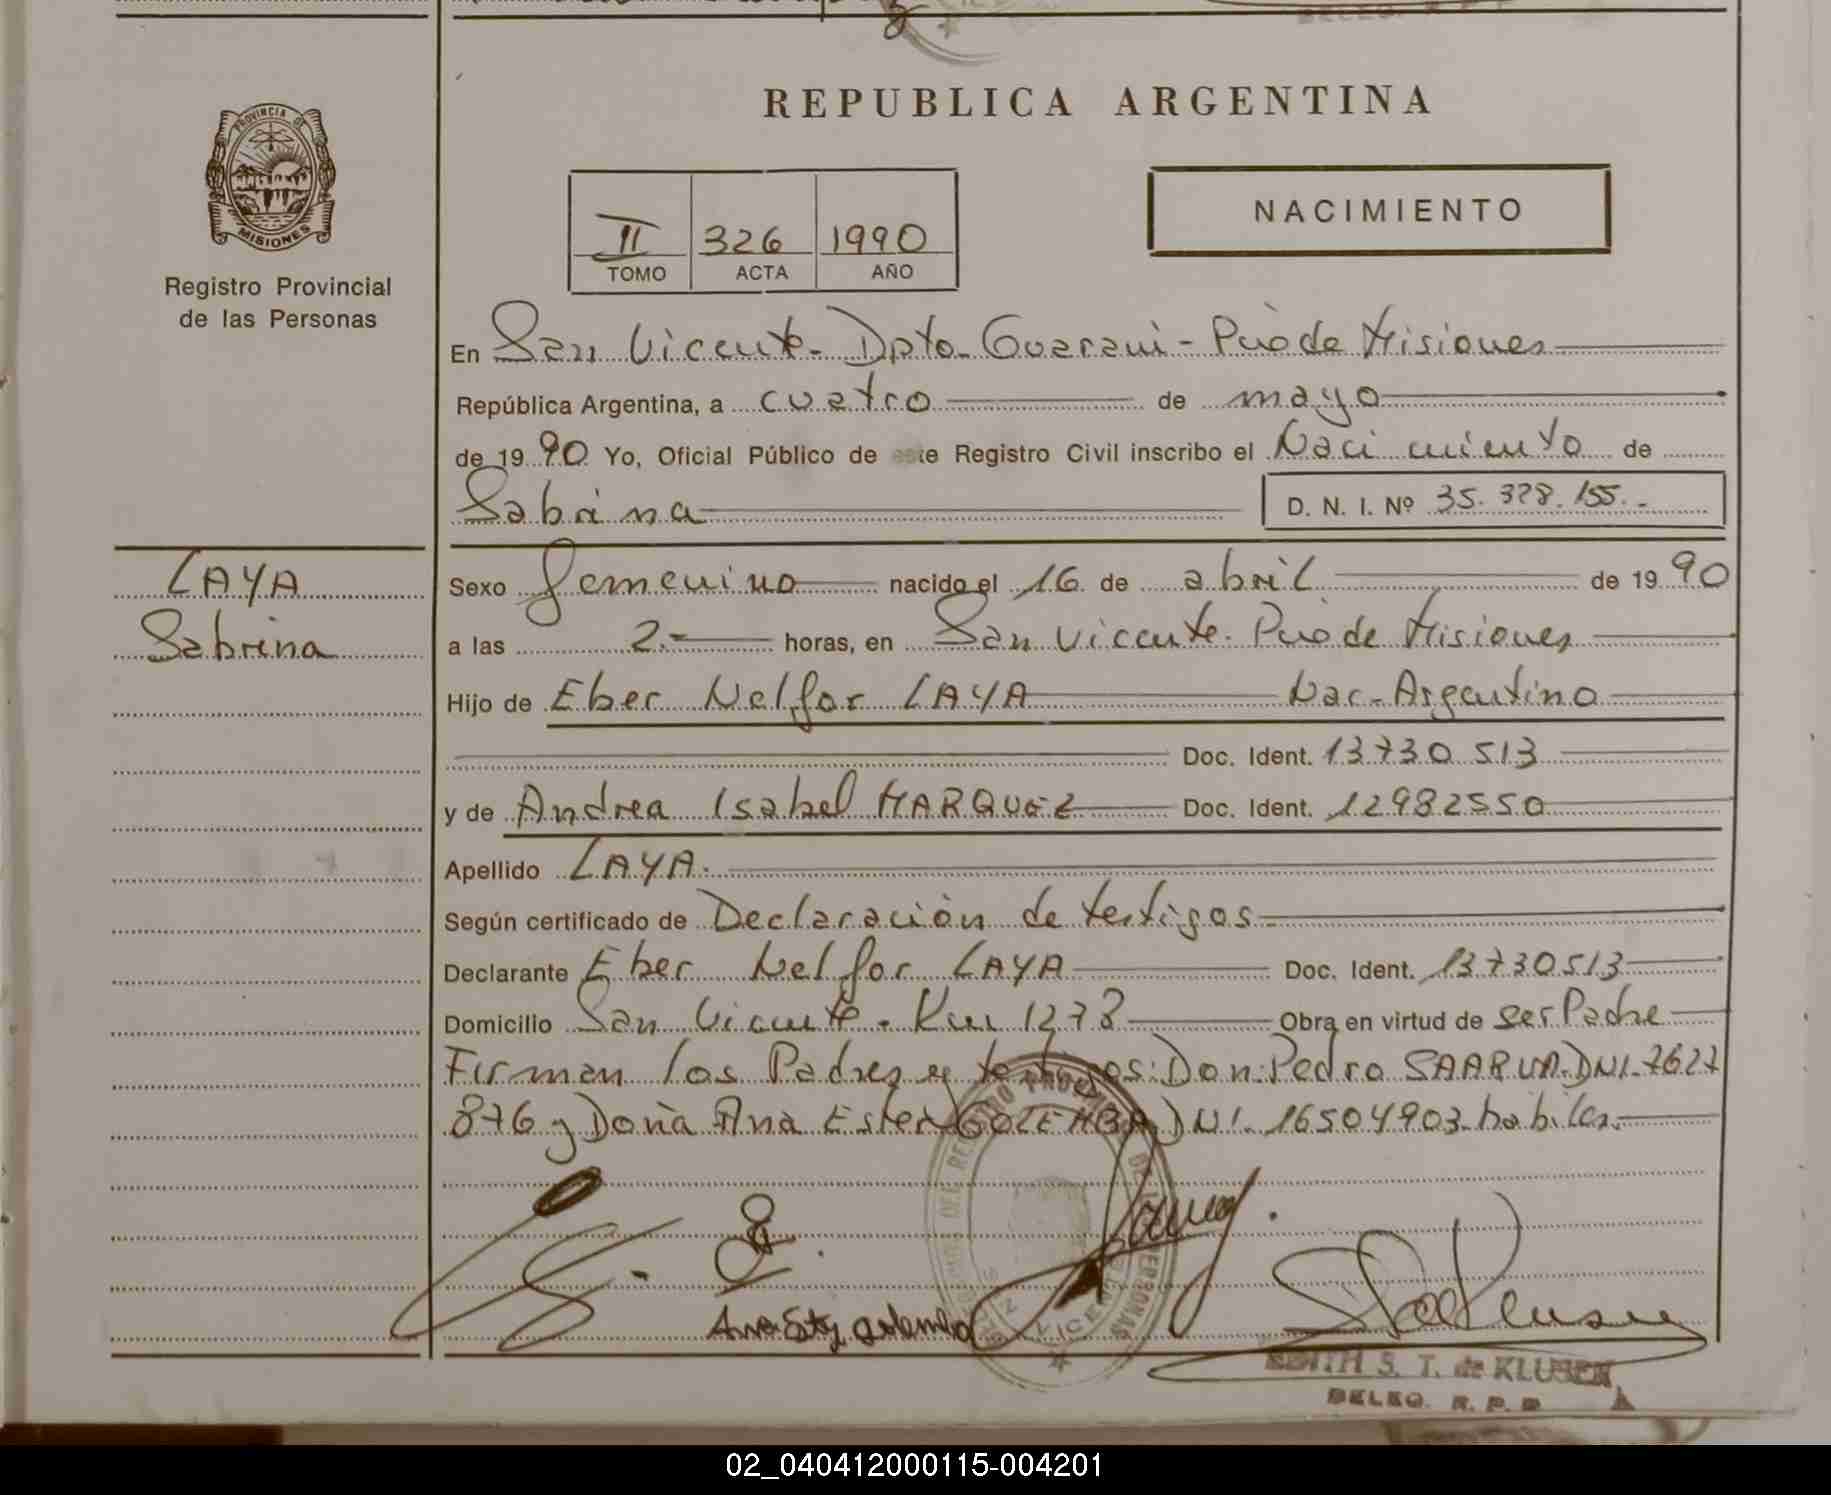 REPUBLICA ARGENTINA
PROVINCIA DE
MISIONES
Registro Provincial
de las Personas
II 326 1990
TOMO ACTA AÑO
NACIMIENTO
En San Vicente - Dpto. Guaraní - Pcia de Misiones
República Argentina, a cuatro de mayo
de 1990 Yo, Oficial Público de este Registro Civil inscribo el Nacimiento de
Sabrina
D. N. I. Nº 35.328.155.-
LAYA
Sabrina
Sexo femenino nacido el 16 de abril de 1990
a las 2.- horas, en San Vicente. Pcia de Misiones
Hijo de Eber Nelfor LAYA Nac-Argentino
Doc. Ident. 13730513
y de Andrea Isabel MARQUEZ Doc. Ident. 12982550
Apellido LAYA.
Según certificado de Declaración de testigos
Declarante Eber Nelfor LAYA Doc. Ident. 13730513
Domicilio San Vicente. Km 1273 Obra en virtud de ser Padre
Firman los Padres y testigos: Don Pedro DNI. 7627
876 y Doña Ana Ester DNI. 16504903 habiles.
EDITH S. T. de KLUSEK
DELEG. R. P. P.
02_040412000115-004201